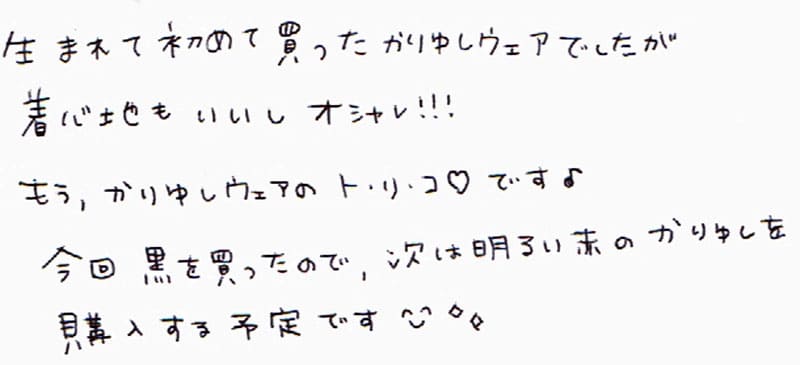 生まれて初めて買ったかりゆしウェアでしたが
着心地もいいしオシャレ!!!
もう,かりゆしウェアのト・リ・コ♡です♪
今回黒を買ったので,次は明るい赤のかりゆしを
購入する予定です